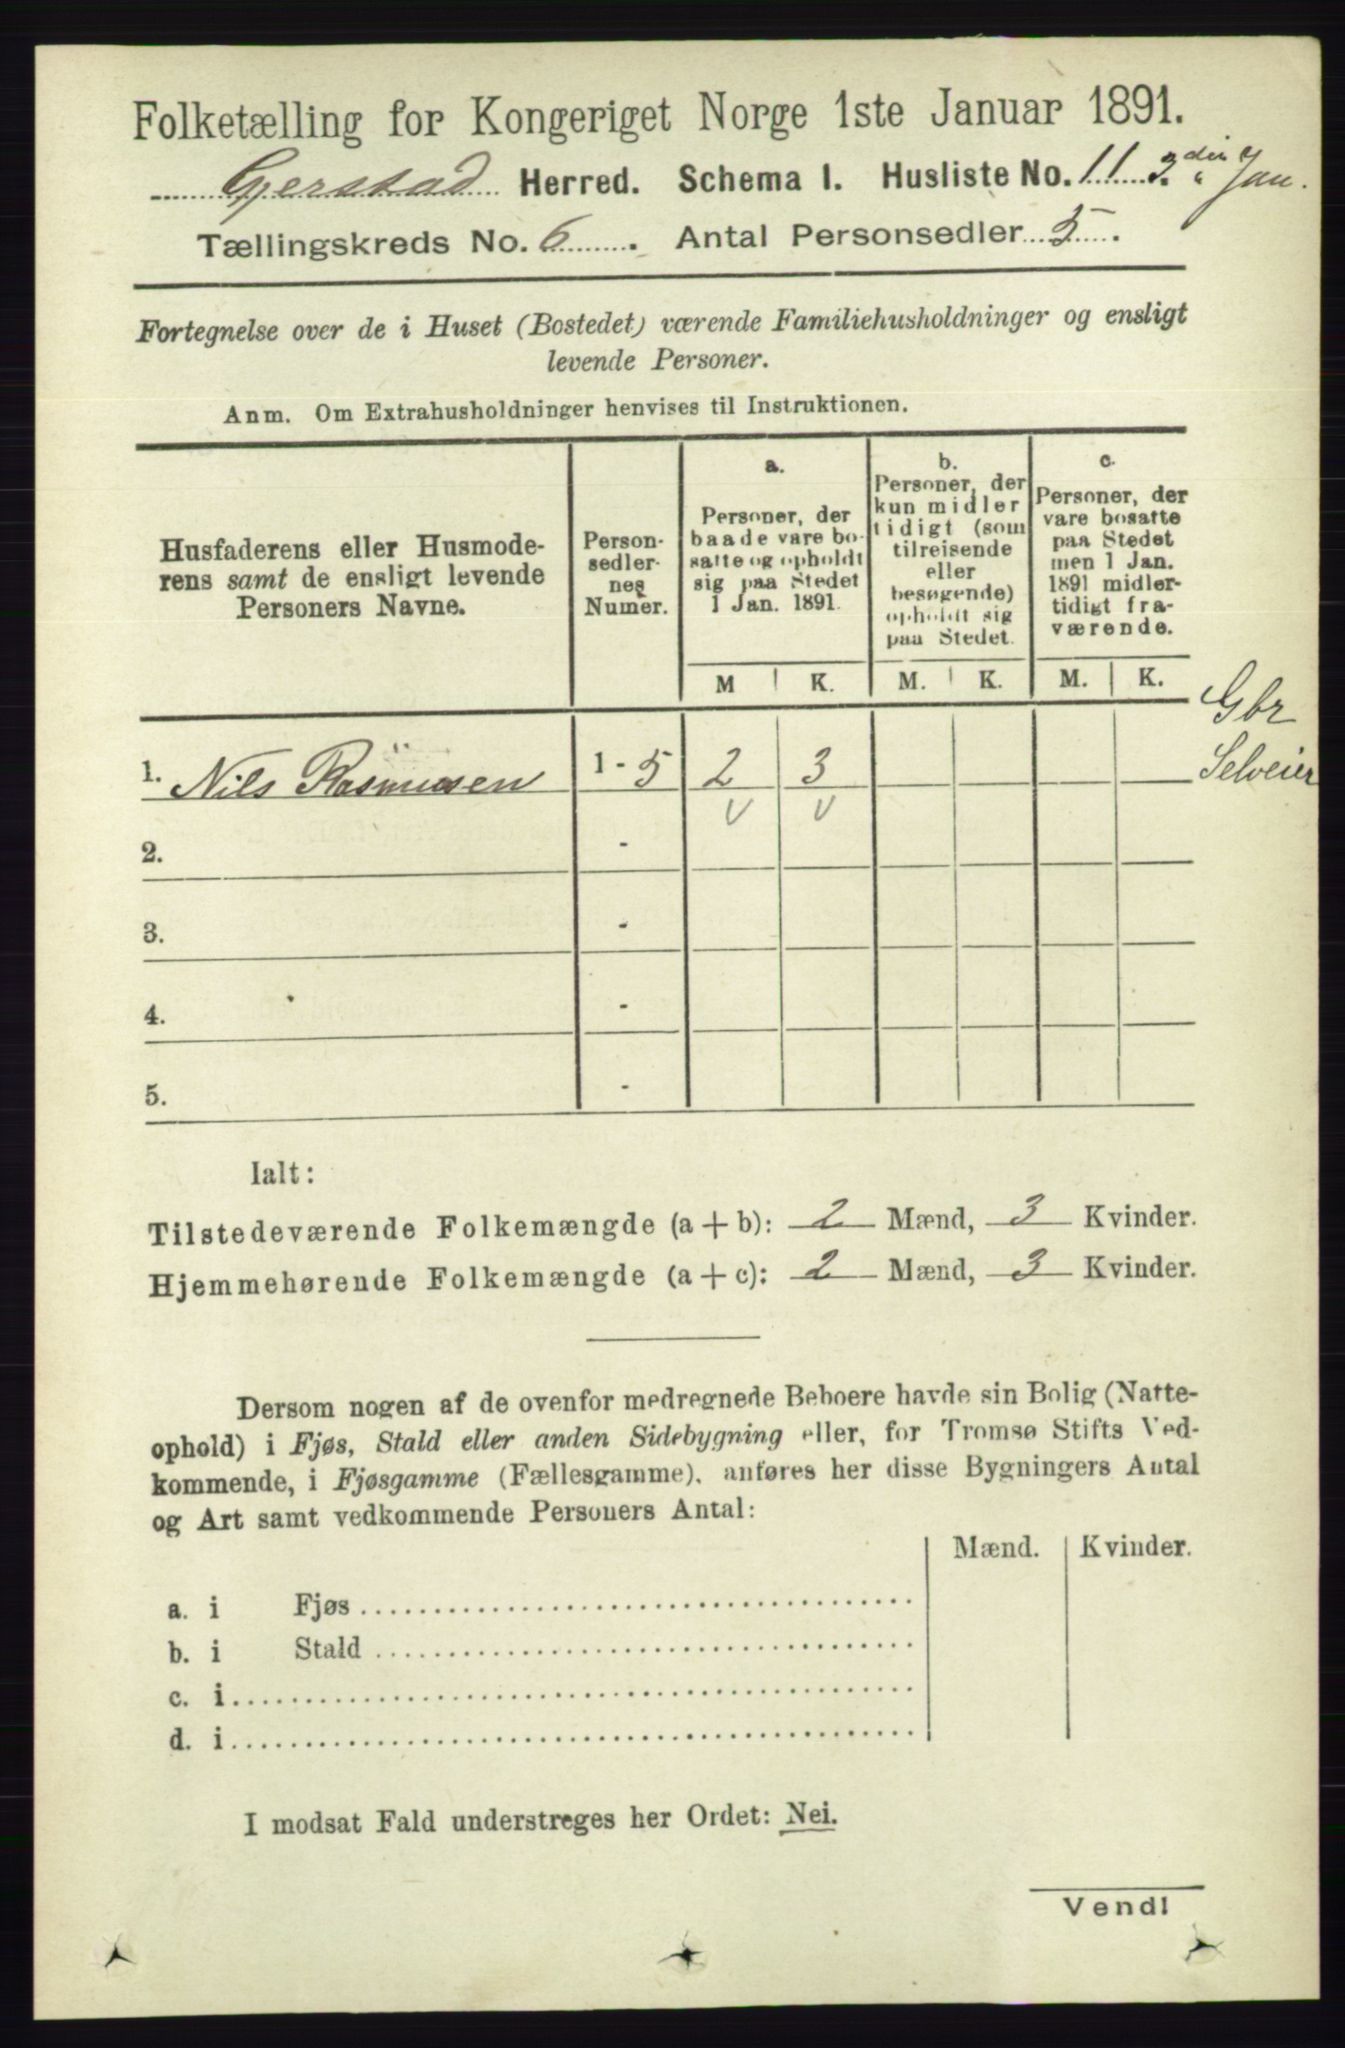 Folketælling for Kongeriget Norge 1ste Januar 1891.
Gjerstad Herred. Schema 1. Husliste No. 11. 3die Jan.
Tællingskreds No. 6. Antal Personsedler 5.
Fortegnelse over de i Huset (Bostedet) værende Familiehusholdninger og ensligt
levende Personer.
Anm. Om Extrahusholdninger henvises til Instruktionen.
Husfaderens eller Husmode-
rens samt de ensligt levende
Personers Navne.
Person-
sedler-
nes
Numer.
a.
Personer, der
baade vare bo-
satte og opholdt
sig paa Stedet
1 Jan. 1891.
M K.
b.
Personer, der
kun midler
tidigt (som
tilreisende
eller
besøgende)
opholdt sig
paa Stedet.
M. K.
c.
Personer, der
vare bosatte
paa Stedet
men 1 Jan.
1891 midler-
tidigt fra-
værende.
M. K.
Gbr
Selveier
1. Nils Rasmussen 1 - 5 2 3
2. -
3. -
4. -
5. -
Ialt:
Tilstedeværende Folkemængde (a + b): 2 Mænd, 3 Kvinder.
Hjemmehørende Folkemængde (a + c): 2 Mænd, 3 Kvinder.
Dersom nogen af de ovenfor medregnede Beboere havde sin Bolig (Natte-
ophold) i Fjøs, Stald eller anden Sidebygning eller, for Tromsø Stifts Ved-
kommende, i Fjøsgamme (Fællesgamme), anføres her disse Bygningers Antal
og Art samt vedkommende Personers Antal:
Mænd. Kvinder.
a. i Fjøs
b. i Stald
c. i
d. i
I modsat Fald understreges her Ordet: Nei.
Vendl